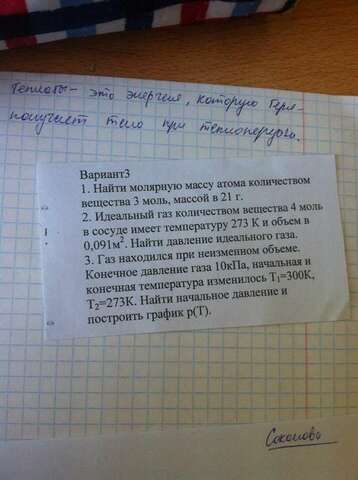 Теплота - это энергия, которую теря-
получает тело при теплопередаче.
Вариант3
1. Найти молярную массу атома количеством
вещества 3 моль, массой в 21 г.
2. Идеальный газ количеством вещества 4 моль
в сосуде имеет температуру 273 К и объем в
0,091м². Найти давление идеального газа.
3. Газ находился при неизменном объеме.
Конечное давление газа 10кПа, начальная и
конечная температура изменилось T₁=300К,
T₂=273К. Найти начальное давление и
построить график р(Т).
Соколовы